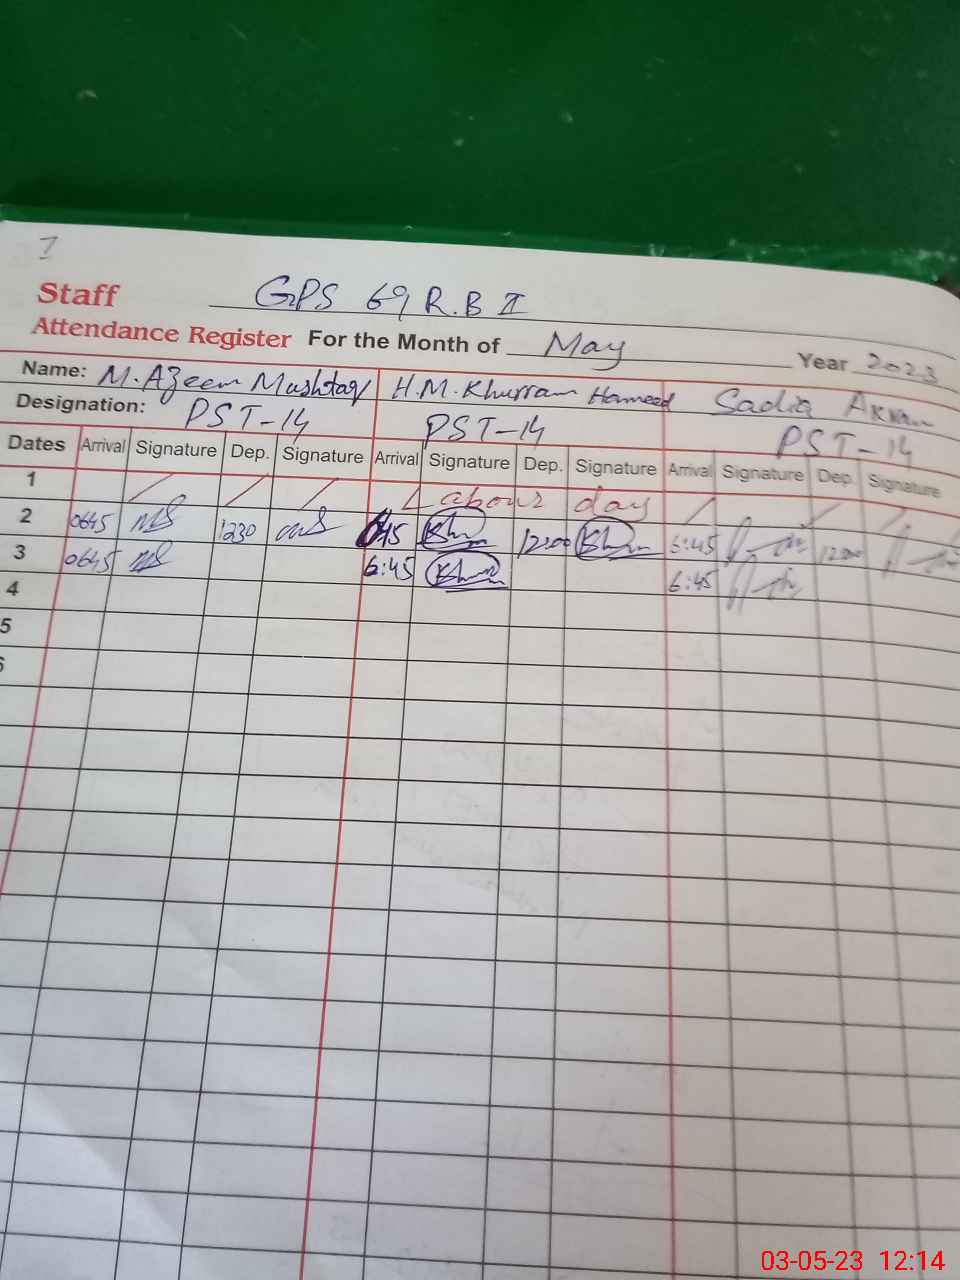 1
Staff GPS 69 R.B II
Attendance Register For the Month of May Year 2023
Name: M. Azeem Mushtaq H.M. Khurram Hameed Sadia Akram
Designation: PST-14 PST-14 PST-14
Dates Arrival Signature Dep. Signature Arrival Signature Dep. Signature Arrival Signature Dep. Signature
1 Labour day
2 0645 1230 645 12:00 6:45 1200
3 0645 6:45 6:45
4
5
6
03-05-23 12:14